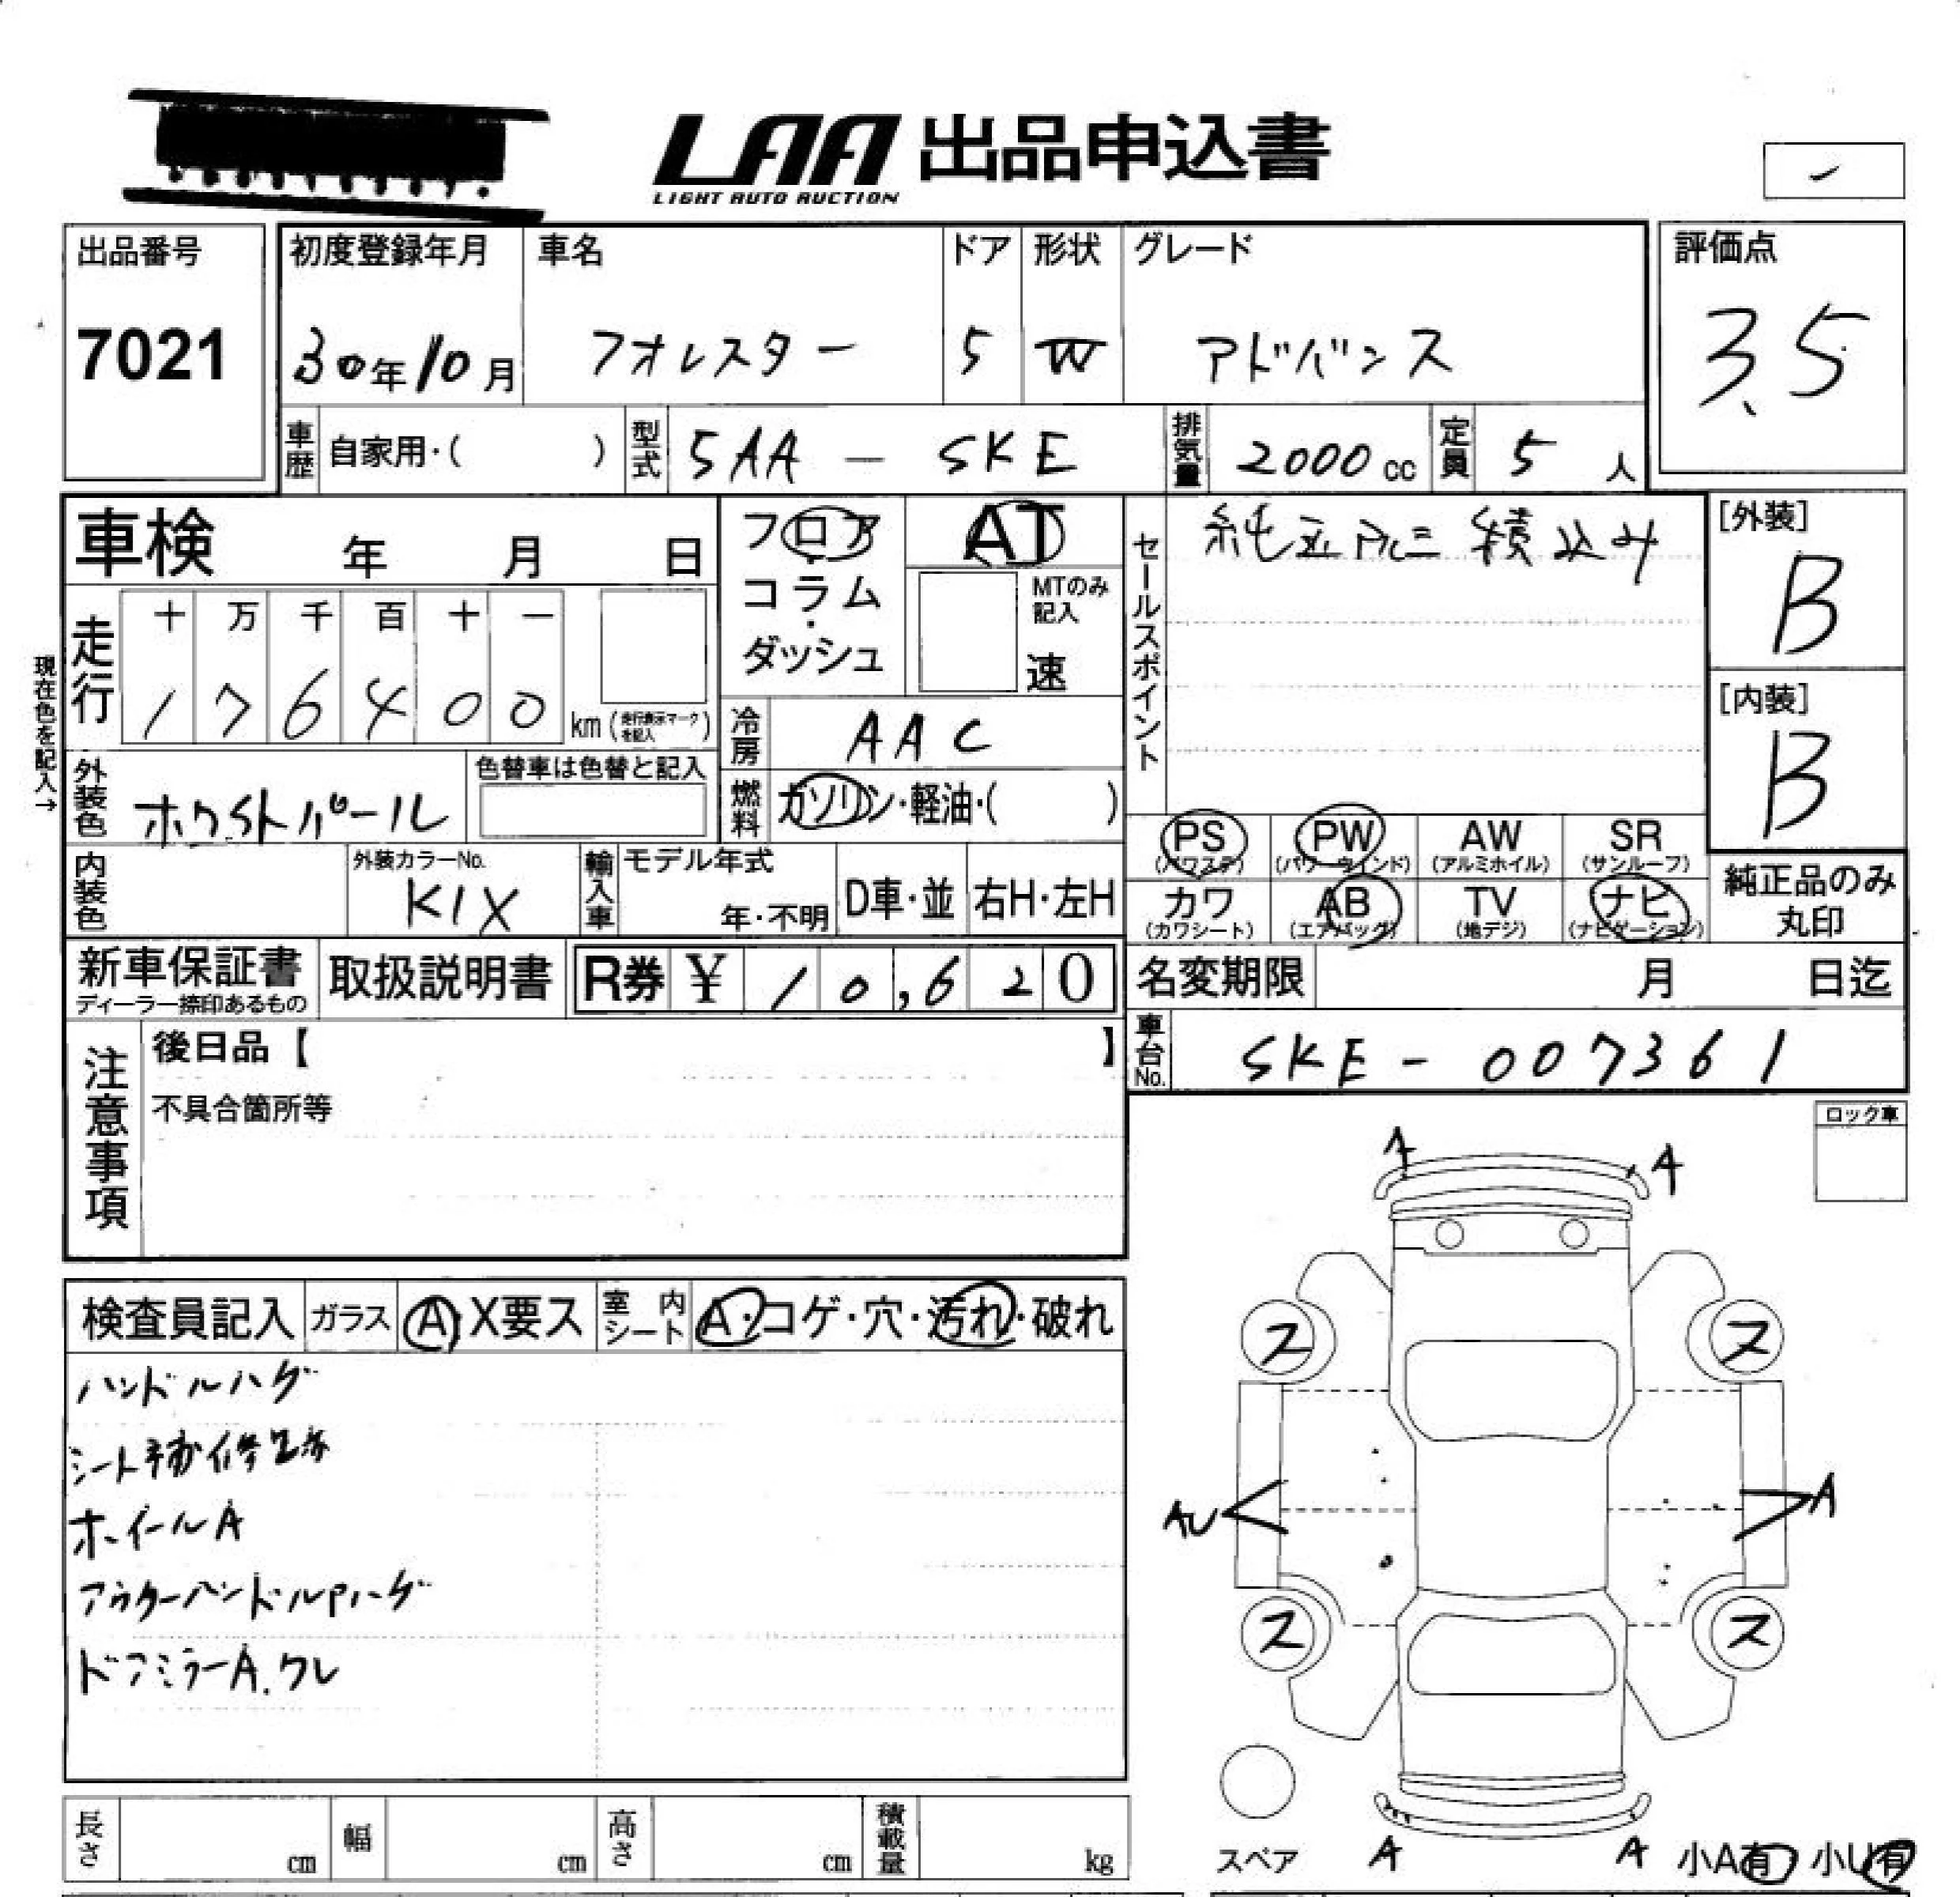 LAA 出品申込書
LIGHT AUTO AUCTION
出品番号
7021
初度登録年月
30年10月
車名
フォレスター
ドア
5
形状
W
グレード
アドバンス
評価点
3.5
車歴
自家用・( )
型式
5AA - SKE
排気量
2000 cc
定員
5 人
車検 年 月 日
フロア
・
コラム
・
ダッシュ
AT
MTのみ
記入
速
セールスポイント
純正アルミ積込み
[外装]
B
[内装]
B
現在色を記入→
走行
十 万 千 百 十 一
1 7 6 4 0 0 km (走行表示マークを記入)
冷房
AAC
燃料
ガソリン・軽油・( )
外装色
ホワイトパール
色替車は色替と記入
内装色
外装カラーNo.
K1X
輸入車
モデル年式
年・不明
D車・並
右H・左H
PS
(パワステ)
PW
(パワーウインド)
AW
(アルミホイル)
SR
(サンルーフ)
カワ
(カワシート)
AB
(エアバッグ)
TV
(地デジ)
ナビ
(ナビゲーション)
純正品のみ
丸印
新車保証書
ディーラー捺印あるもの
取扱説明書
R券 ¥ 10,620
名変期限 月 日迄
車台No.
SKE - 007361
注意事項
後日品【 】
不具合箇所等
ロック車
A A
検査員記入 ガラス A・X要ス 室内シート A・コゲ・穴・汚れ・破れ
ハンドルハゲ
ス ス
ホイールA
AU A
アウターハンドルPハゲ
ス ス
ドアミラーA.ワレ
長さ cm 幅 cm 高さ cm 積載量 kg
スペア A A 小A有 小U有